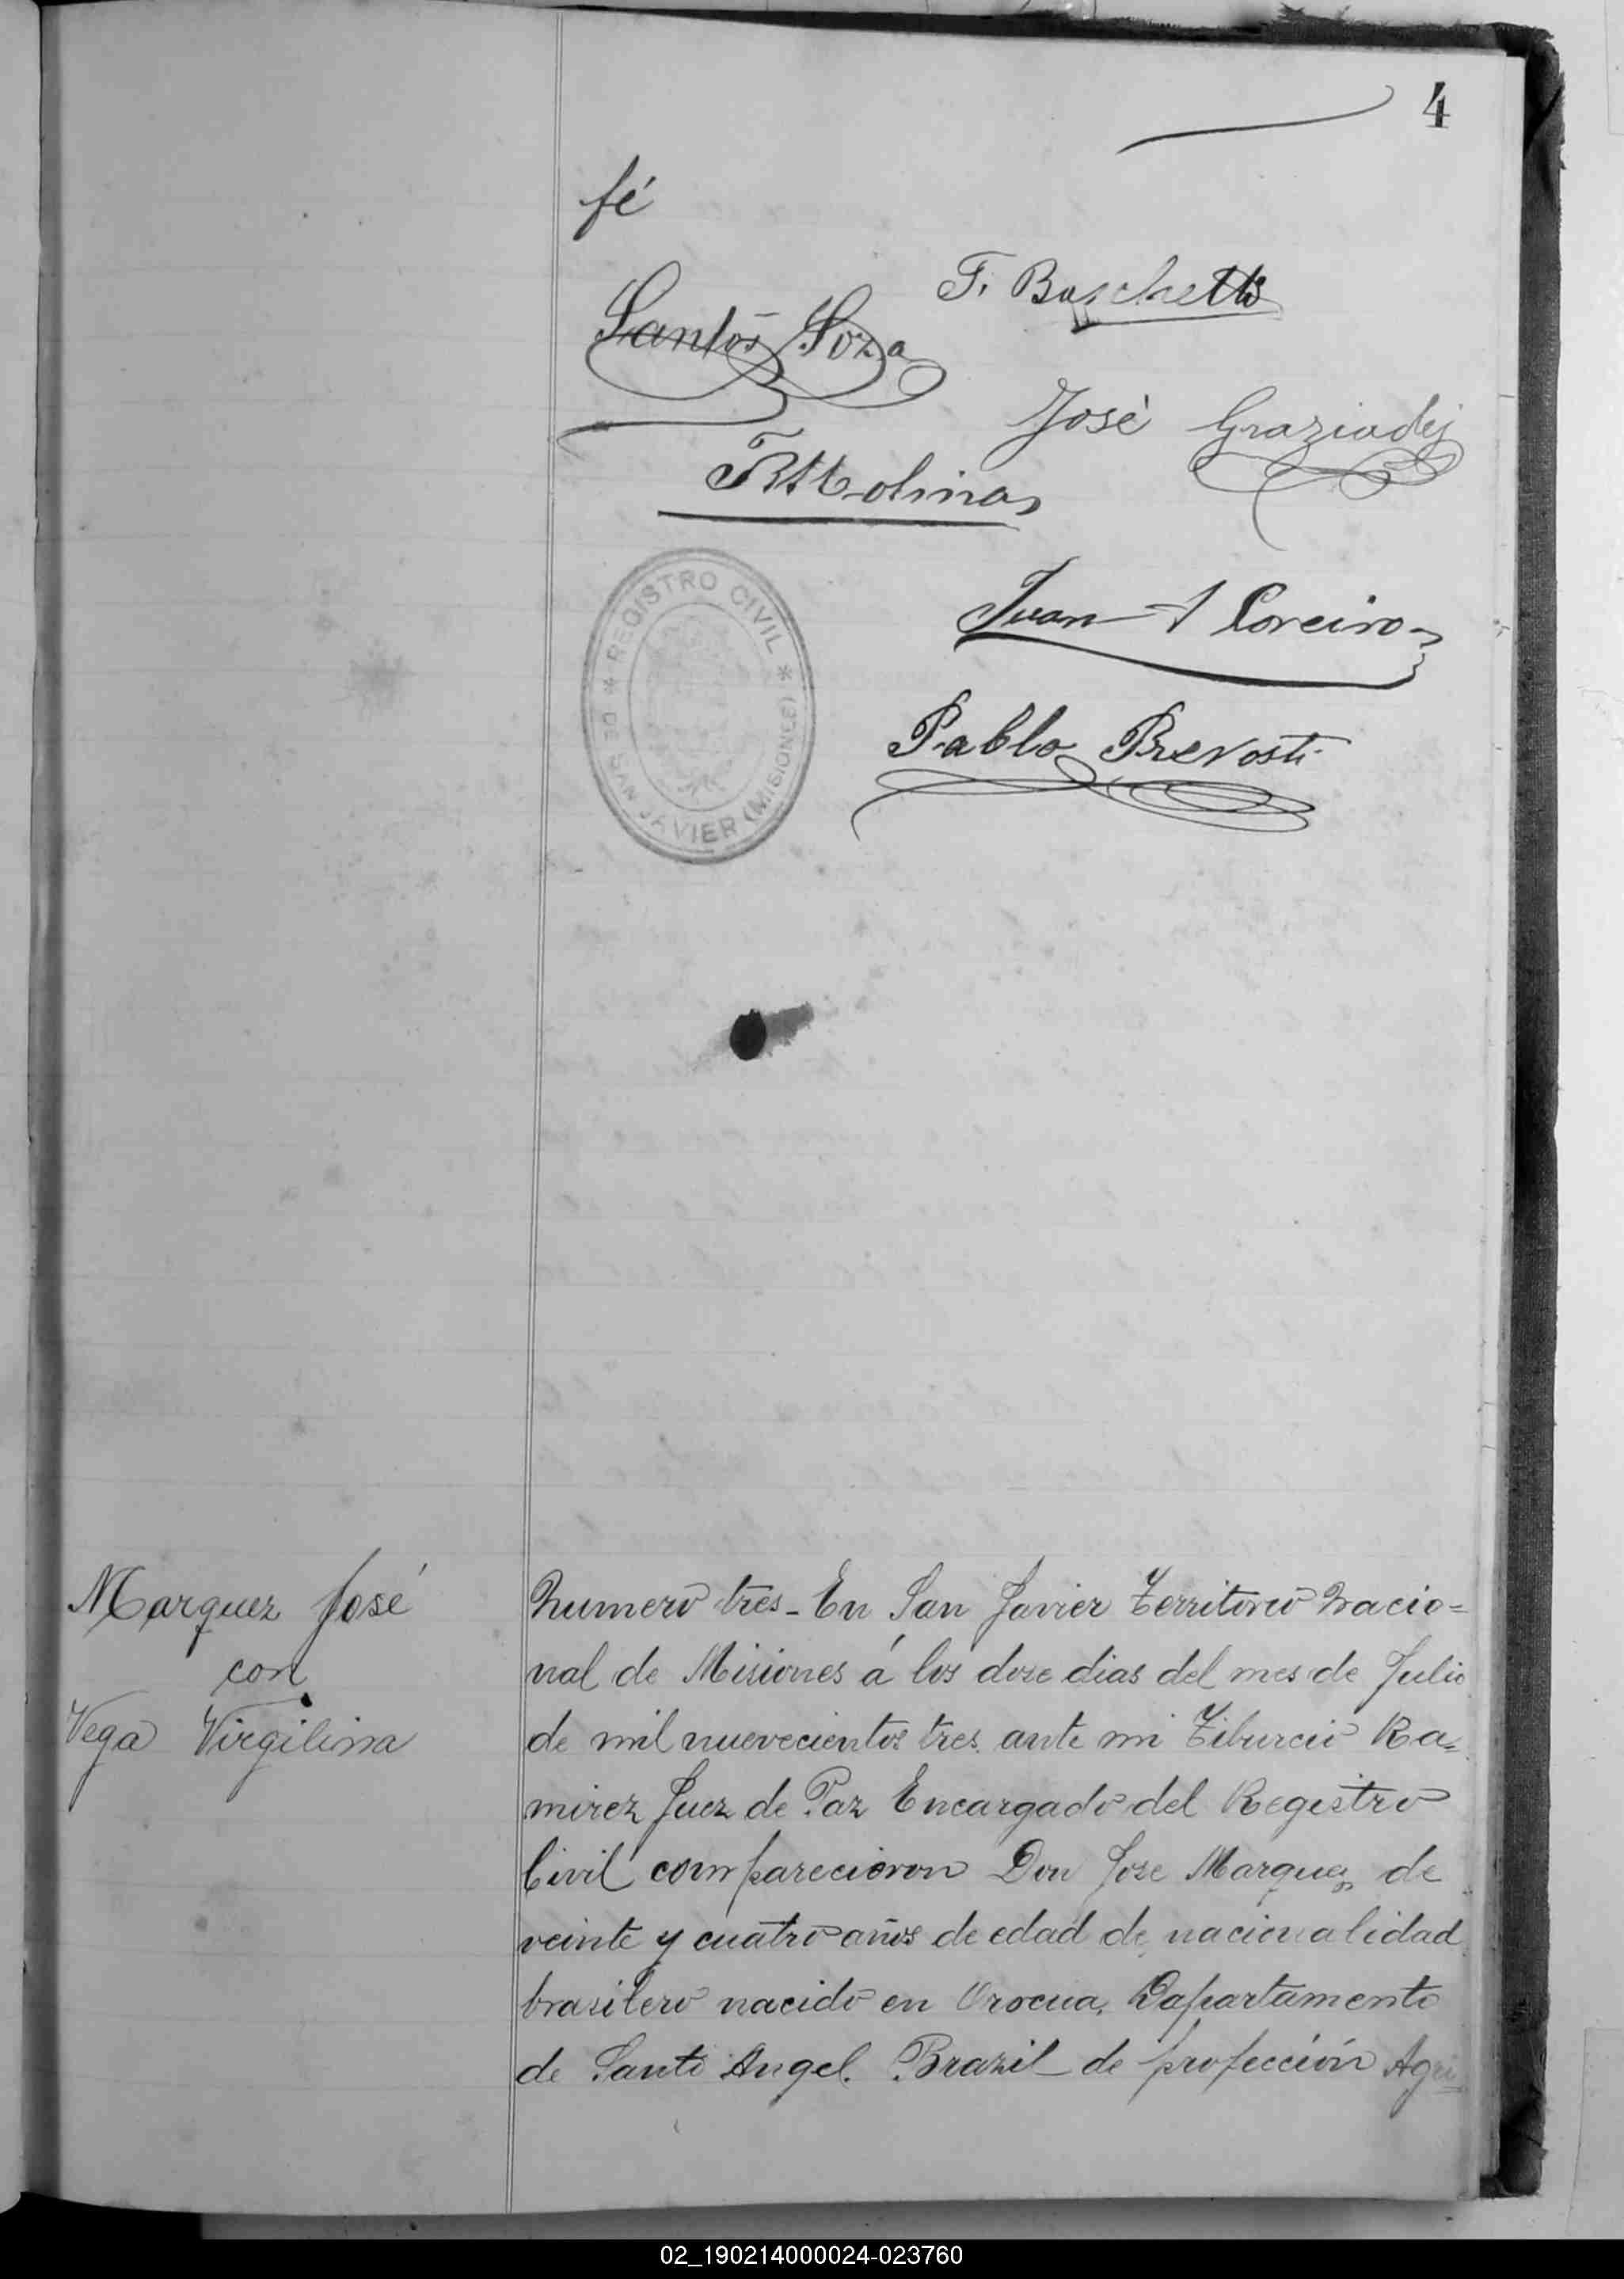 4
fé
F. Boschetti
Santos Soza
José Graziadei
Molina
Juan A Loreiro
REGISTRO CIVIL
DE SAN JAVIER (MISIONES)
Pablo Prevosti
Marquez José
con
Vega Virgilina
Numero tres - En San Javier Territorio Nacio=
nal de Misiones á los dose dias del mes de Julio
de mil nuevecientos tres. ante mi Tiburcio Ra=
mirez Juez de Paz Encargado del Registro
Civil comparecieron Don Jose Marquez de
veinte y cuatro años de edad de nacionalidad
brasilero nacido en Orocua, Dapartamento
de Santo Angel. Brazil - de profección Agri=
02_190214000024-023760